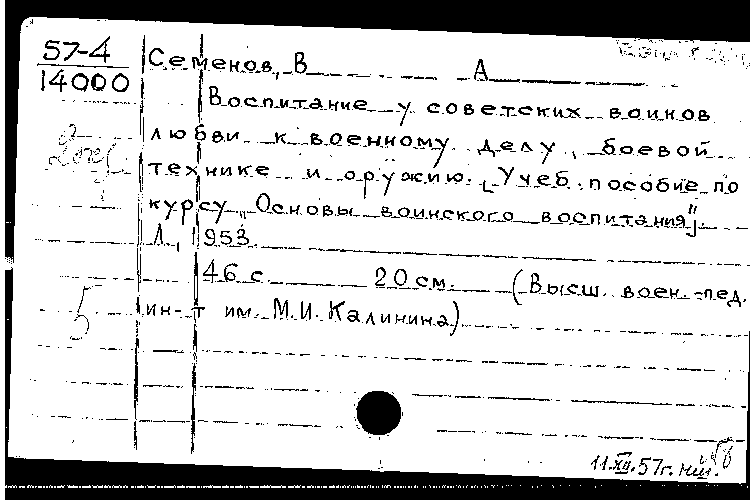 57-4
14000
Семенов, В А
Воспитание у советских воинов
любви к военному делу, боевой
технике и оружию. [Учеб. пособие по
курсу „Основы воинского воспитания"].
Л., 1953.
46 с. 20 см. (Высш. воен.-пед.
ин-т им. М.И. Калинина)
5
11.XII.57г.